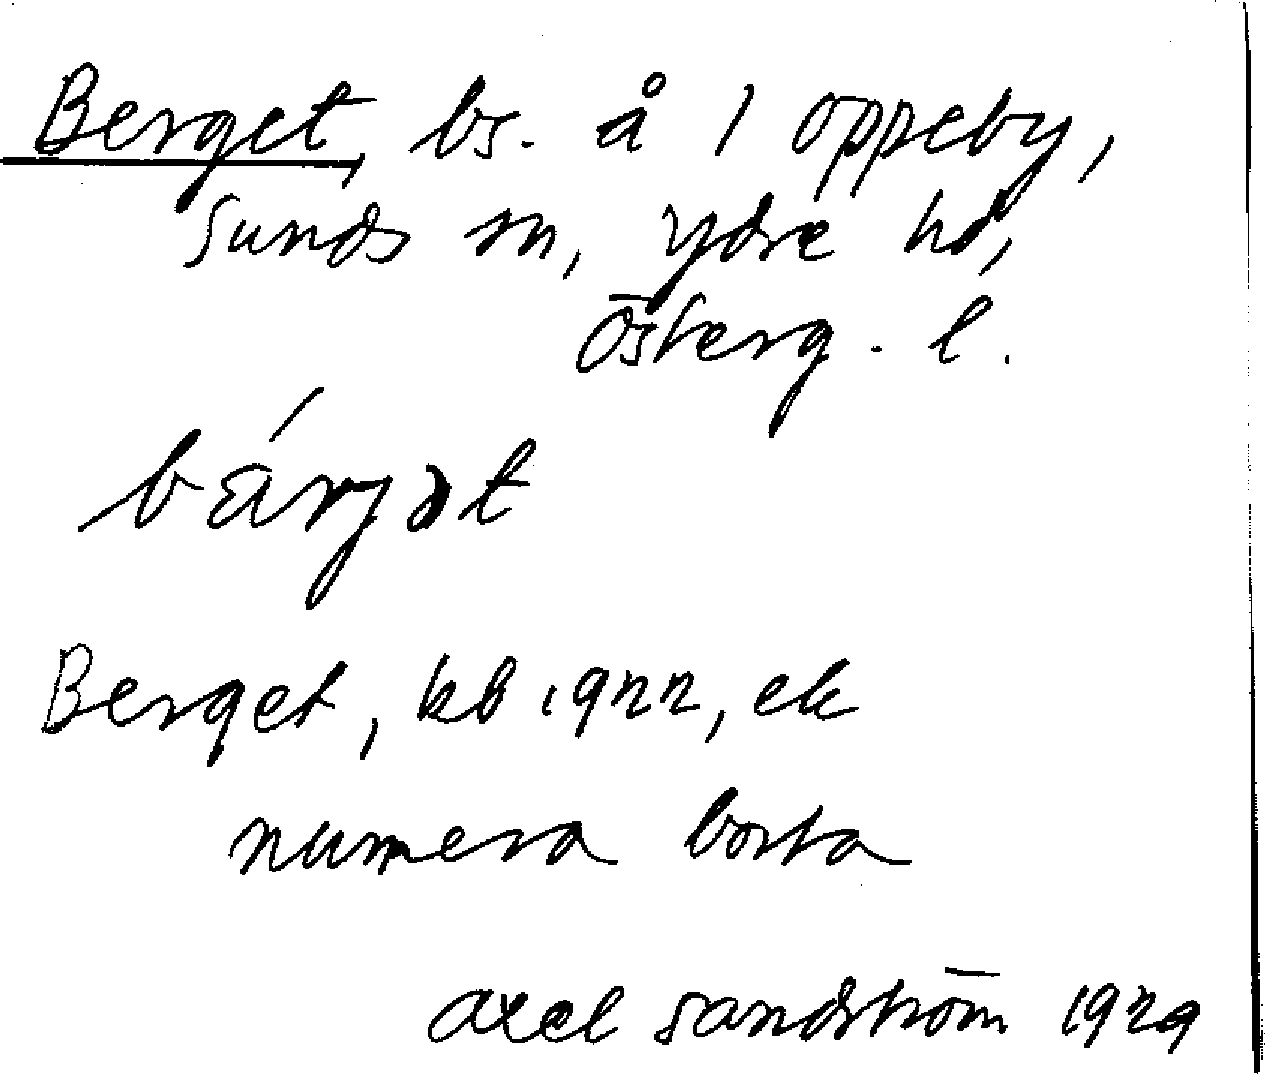 Berget, bs. å 1 Oppeby,
Sunds sn, Ydre hd,
Österg. l.
bárjət
Berget, kb 1922, ek
numera borta
Axel Sandström 1929